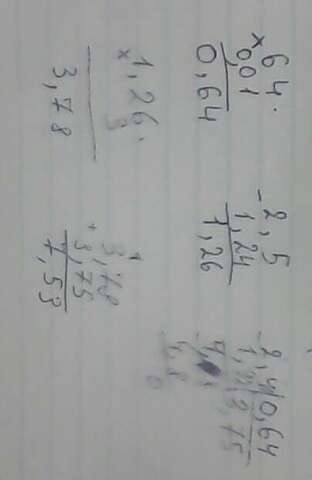 64·
×0,01
0,64
-2,5
1,24
1,26
-2,4|0,64
3,75
1,26·
×3
3,78
3,78
+3,75
7,53